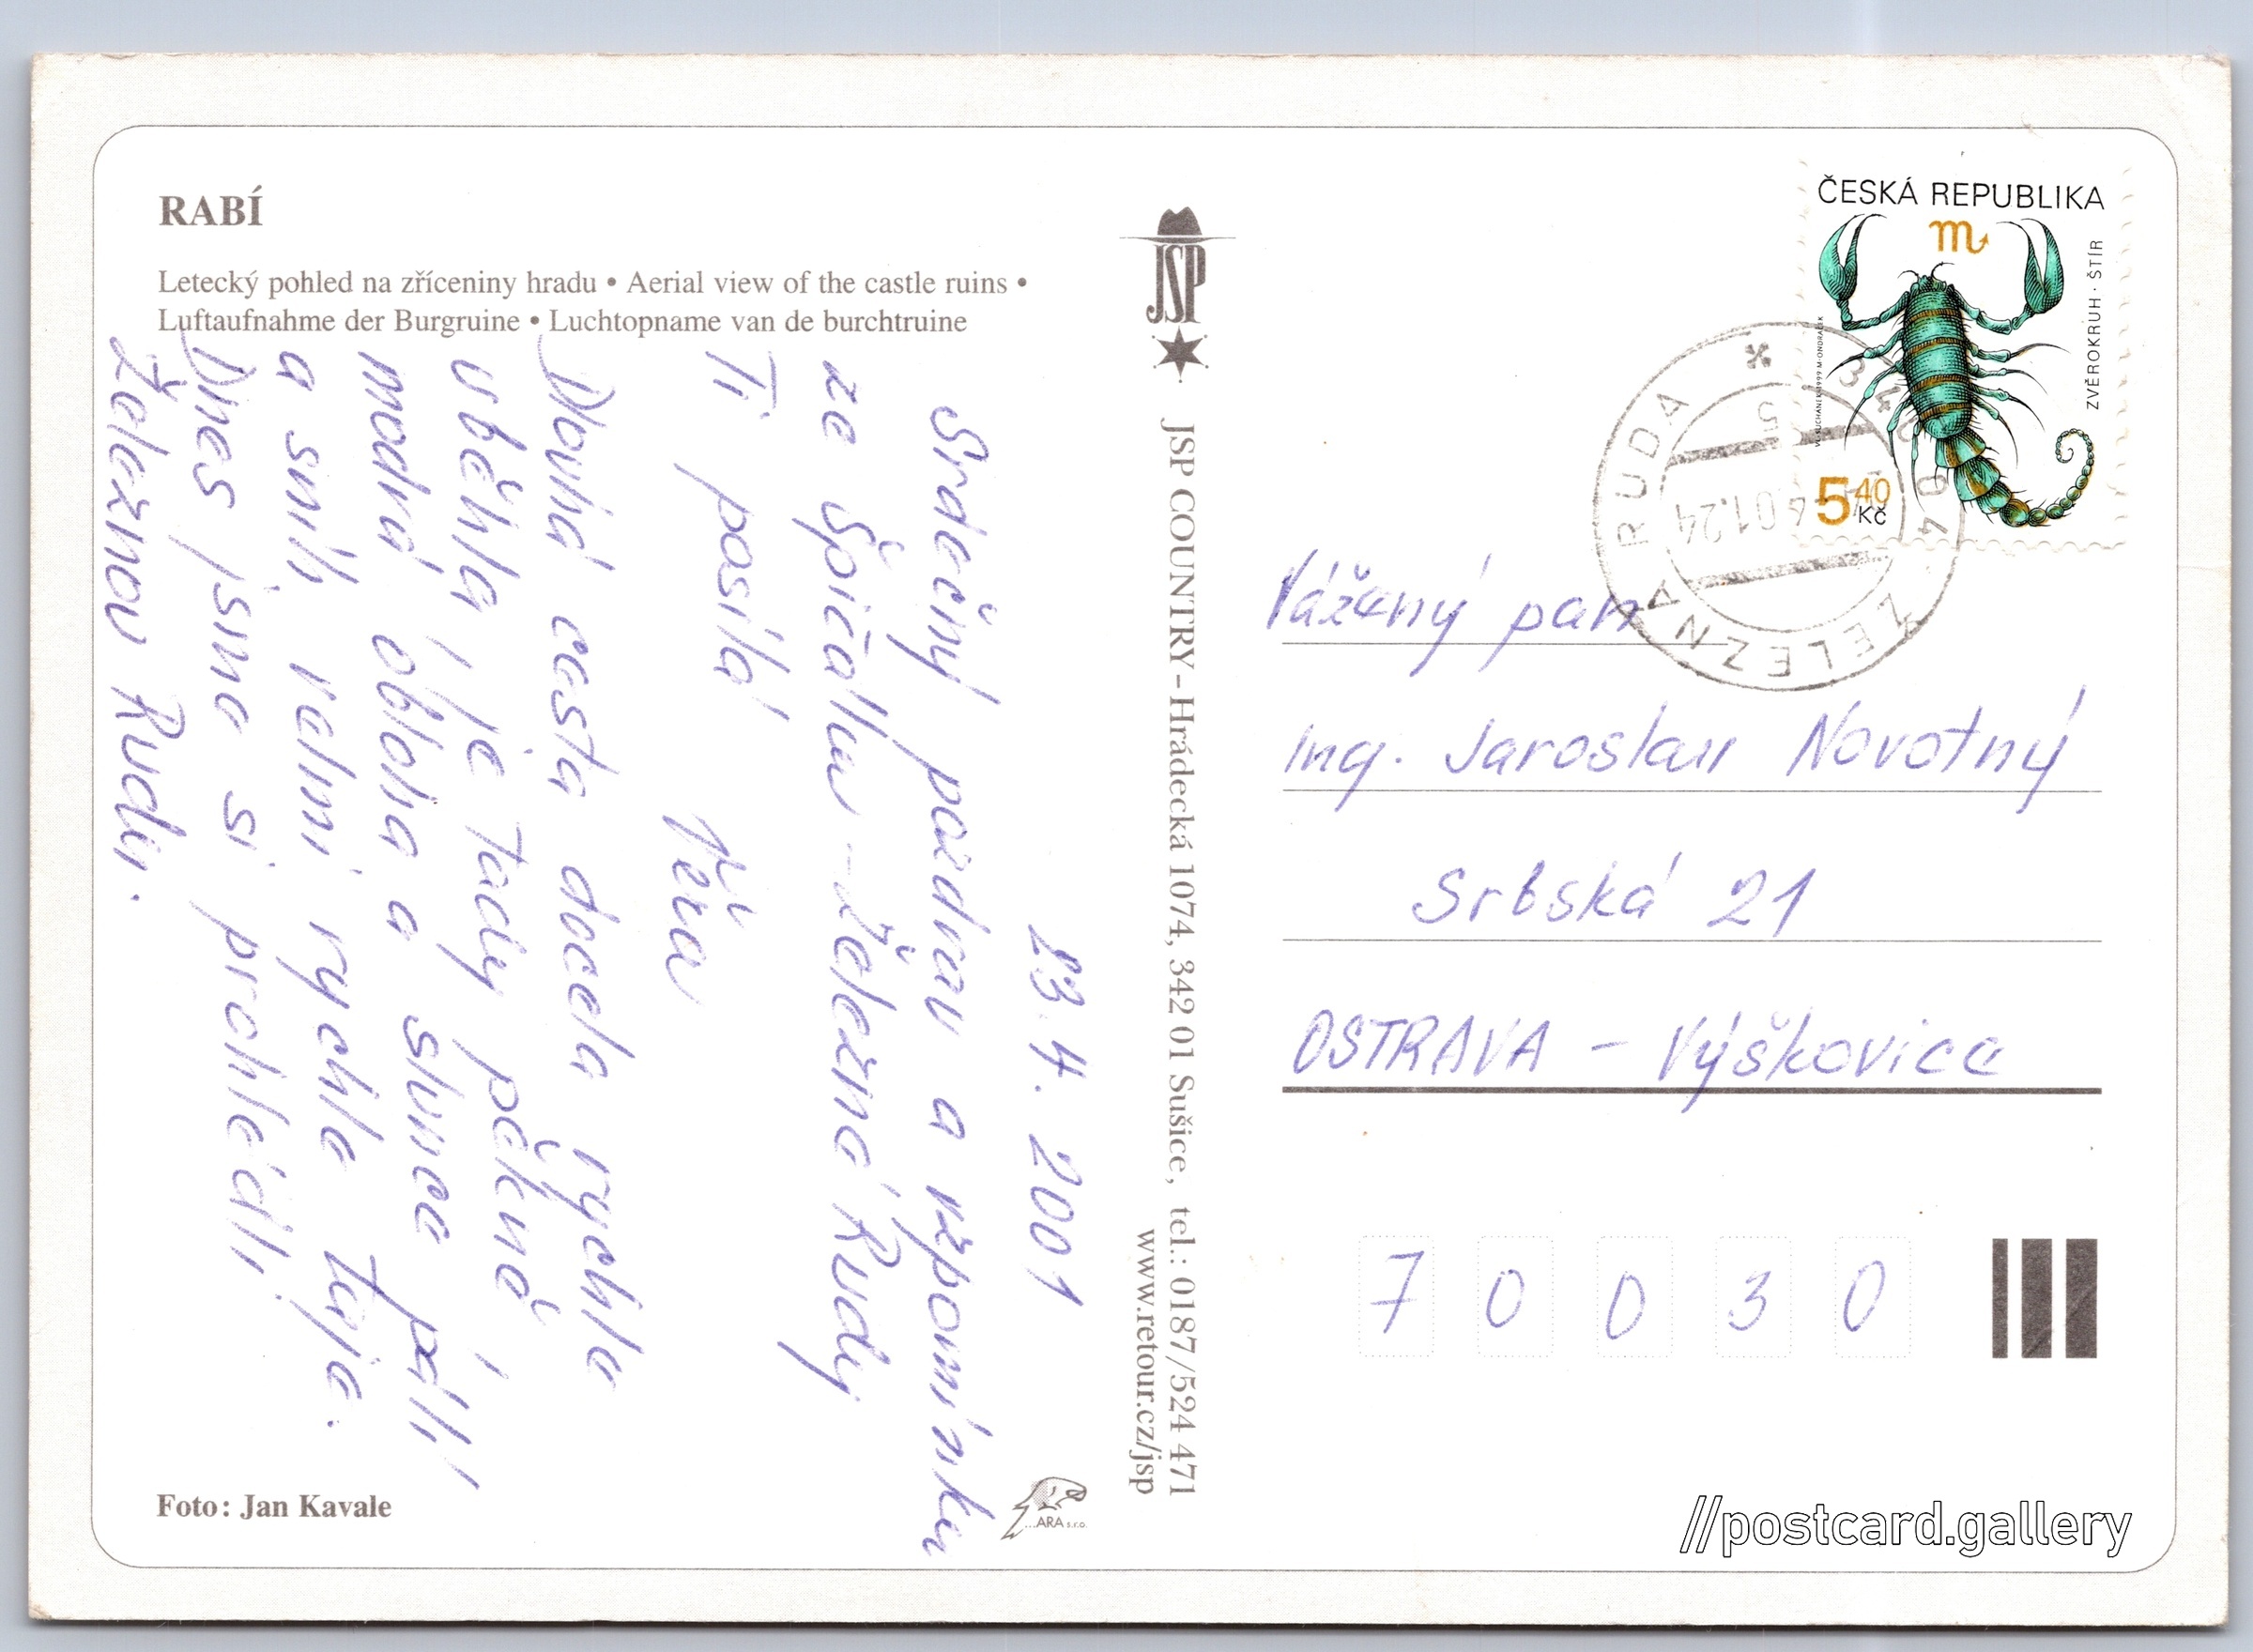 RABÍ
Letecký pohled na zříceniny hradu • Aerial view of the castle ruins •
Luftaufnahme der Burgruine • Luchtopname van de burchtruine
23. 4. 2001
Srdečný pozdrav a vzpomínku
ze Špičáku – Železné Rudy
Ti posílá
Věra
Dlouhá cesta docela rychle
uběhla, je tady pěkně,
modrá obloha a slunce pálí
a sníh velmi rychle taje.
Dnes jsme si prohlédli
Železnou Rudu.
Foto: Jan Kavale
...ARA s.r.o.
JSP
JSP COUNTRY - Hrádecká 1074, 342 01 Sušice, tel.: 0187/524 471
www.retour.cz/jsp
ČESKÁ REPUBLIKA
ZVĚROKRUH · ŠTÍR
5 40 Kč
ŽELEZNÁ RUDA
340 04
01.24
Vážený pan
Ing. Jaroslav Novotný
Srbská 21
OSTRAVA - Výškovice
7 0 0 3 0
//postcard.gallery